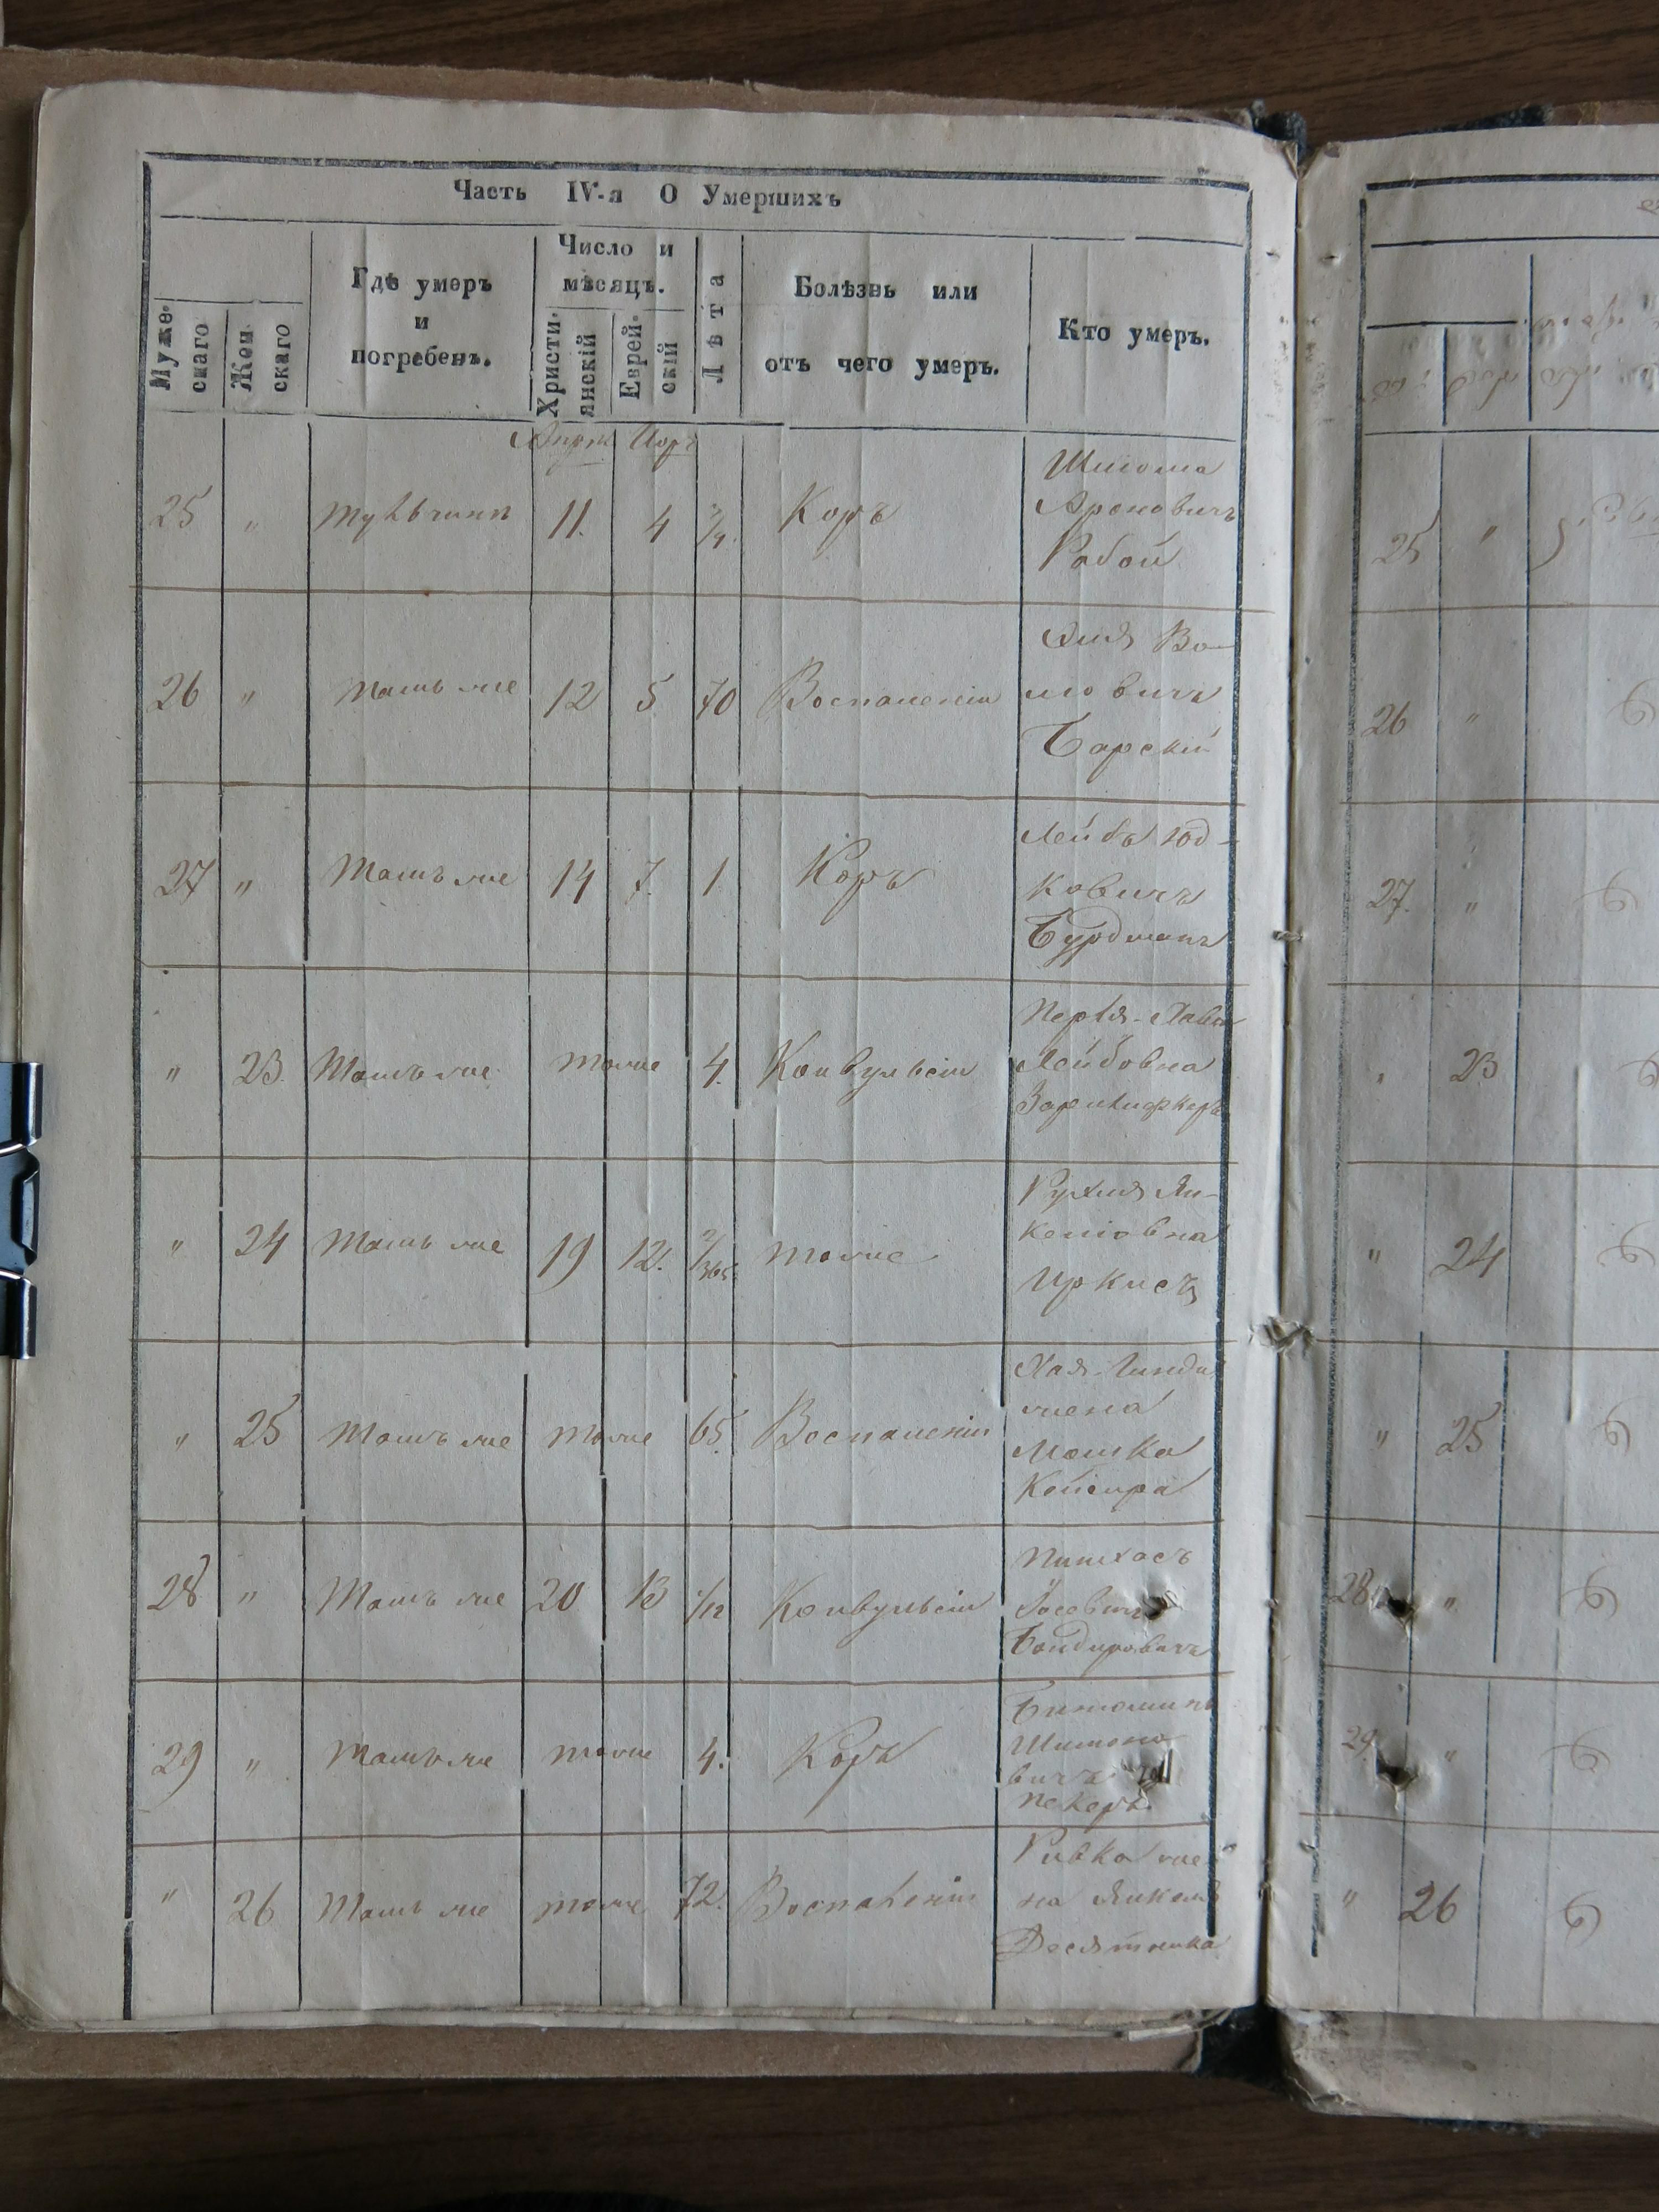 Часть IV-я О Умершихъ
Муже-
скаго
Жен
скаго
Гдѣ умеръ
и
погребенъ.
Число и
мѣсяцъ.
Христи-
янскій
Еврей-
скій
Лѣта
Болѣзнь или
отъ чего умеръ.
Кто умеръ.
25 " 11. 4 3/4. Коръ
Ароновичъ
Рабой
26 " тамъ же 12 5 70 Воспаленія
Барскій
27 " Тамъ же 14 7. 1 Коръ
Лейба Юд-
ковичъ
Бурдманъ
" 23. Тамъ же тоже 4. Конвульсіи
Перля-
Лейбовна
" 24 Тамъ же 19 12. 2/365 тоже
Рухля Ян-
келіовна
Иркисъ
" 25 Тамъ же тоже 65. Воспаленія
Хая-
жена
Мошка
28 " Тамъ же 20 13 1/12 Конвульсіи
Пинхасъ
Іосевичъ
29 " Тамъ же тоже 4. Коръ
Шимоно
вичъ
пекеръ
" 26 Тамъ же тоже 72. Воспаленія
Ривка же
на Янкеля
Десятника
25 "
26 "
27. "
" 23
" 24
" 25
28 "
29. "
" 26